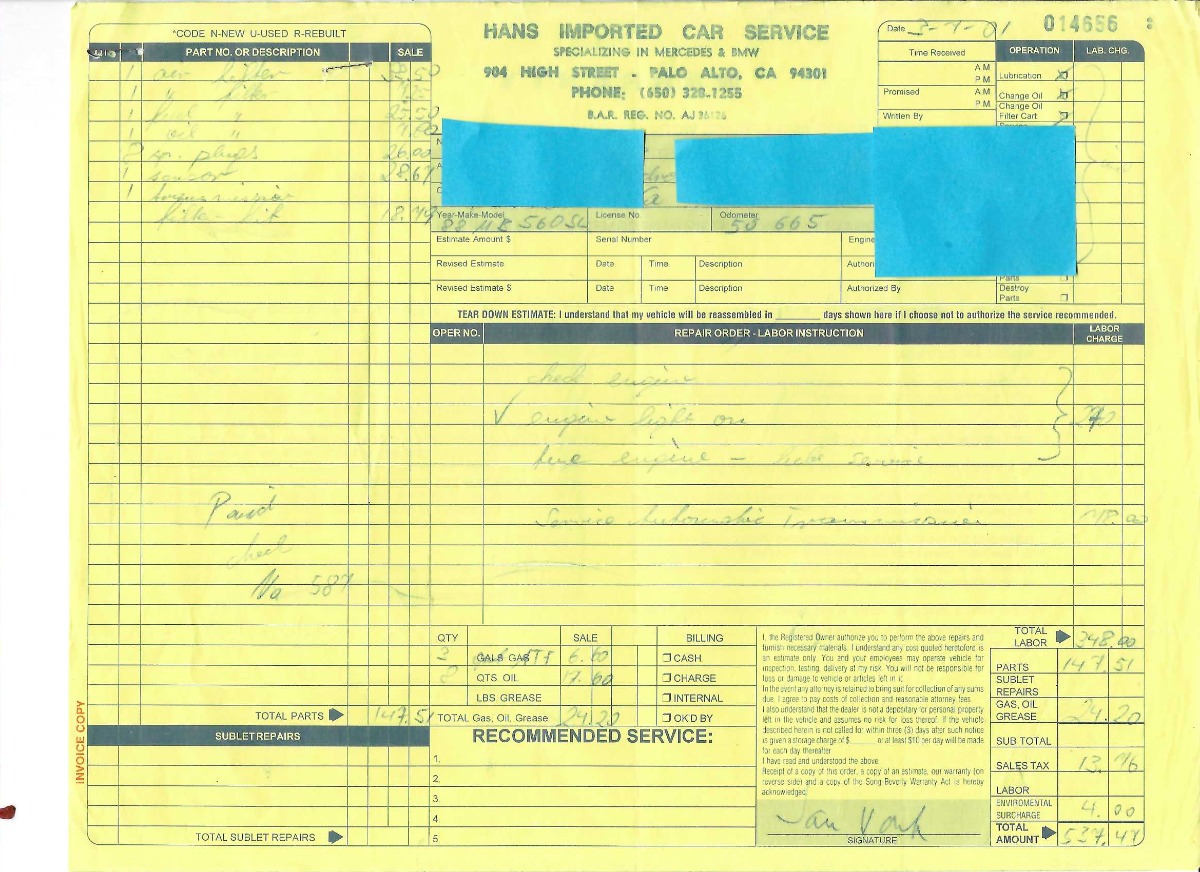 *CODE N-NEW U-USED R-REBUILT
PART NO. OR DESCRIPTION SALE
1 air filter 32.50
1 " filter
1 fuel " 25.50
1 oil "
2 sp. plugs 26.00
1 sensor 28.67
1 transmission
filter kit 18.79
Paid
check
No 587
TOTAL PARTS 147.51
SUBLET REPAIRS
TOTAL SUBLET REPAIRS
INVOICE COPY
HANS IMPORTED CAR SERVICE
SPECIALIZING IN MERCEDES & BMW
904 HIGH STREET - PALO ALTO, CA 94301
PHONE: (650) 328-1255
B.A.R. REG. NO. AJ 36126
Date 3-7-01 014656
Time Received AM PM
Promised AM PM
Written By
OPERATION LAB. CHG.
Lubrication
Change Oil
Change Oil
Filter Cart
Parts
Destroy
Parts
Year-Make-Model 88 MB 560SL License No. Odometer 50 665
Estimate Amount $ Serial Number Engine
Revised Estimate Date Time Description Authori
Revised Estimate $ Date Time Description Authorized By
TEAR DOWN ESTIMATE: I understand that my vehicle will be reassembled in ______ days shown here if I choose not to authorize the service recommended.
OPER NO. REPAIR ORDER - LABOR INSTRUCTION LABOR CHARGE
check engine
✓ engine light on
tune engine - service
Service Automatic Transmission
QTY SALE BILLING
3 GALS GAS ATF 6.60 CASH
8 QTS OIL 17.60 CHARGE
LBS GREASE INTERNAL
TOTAL Gas, Oil, Grease 24.20 OK'D BY
RECOMMENDED SERVICE:
1.
2.
3
4
5
I, the Registered Owner authorize you to perform the above repairs and
furnish necessary materials. I understand any cost quoted heretofore is
an estimate only. You and your employees may operate vehicle for
inspection, testing, delivery at my risk. You will not be responsible for
loss or damage to vehicle or articles left in it.
In the event any attorney is retained to bring suit for collection of any sums
due, I agree to pay costs of collection and reasonable attorney fees.
I also understand that the dealer is not a depositary for personal property
left in the vehicle and assumes no risk for loss thereof. If the vehicle
described herein is not called for within three (3) days after such notice
is given a storage charge of $____ or at least $10 per day will be made
for each day thereafter
I have read and understood the above.
Receipt of a copy of this order, a copy of an estimate, our warranty (on
reverse side) and a copy of the Song-Beverly Warranty Act is hereby
acknowledged.
SIGNATURE
TOTAL LABOR 348.00
PARTS 147.51
SUBLET REPAIRS
GAS, OIL GREASE 24.20
SUB TOTAL
SALES TAX 13.76
LABOR
ENVIROMENTAL SURCHARGE 4.00
TOTAL AMOUNT 537.47